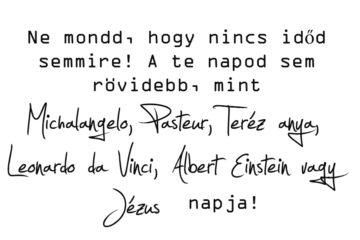 Ne mondd, hogy nincs időd
semmire! A te napod sem
rövidebb, mint
Michalangelo, Pasteur, Teréz anya,
Leonardo da Vinci, Albert Einstein vagy
Jézus napja!